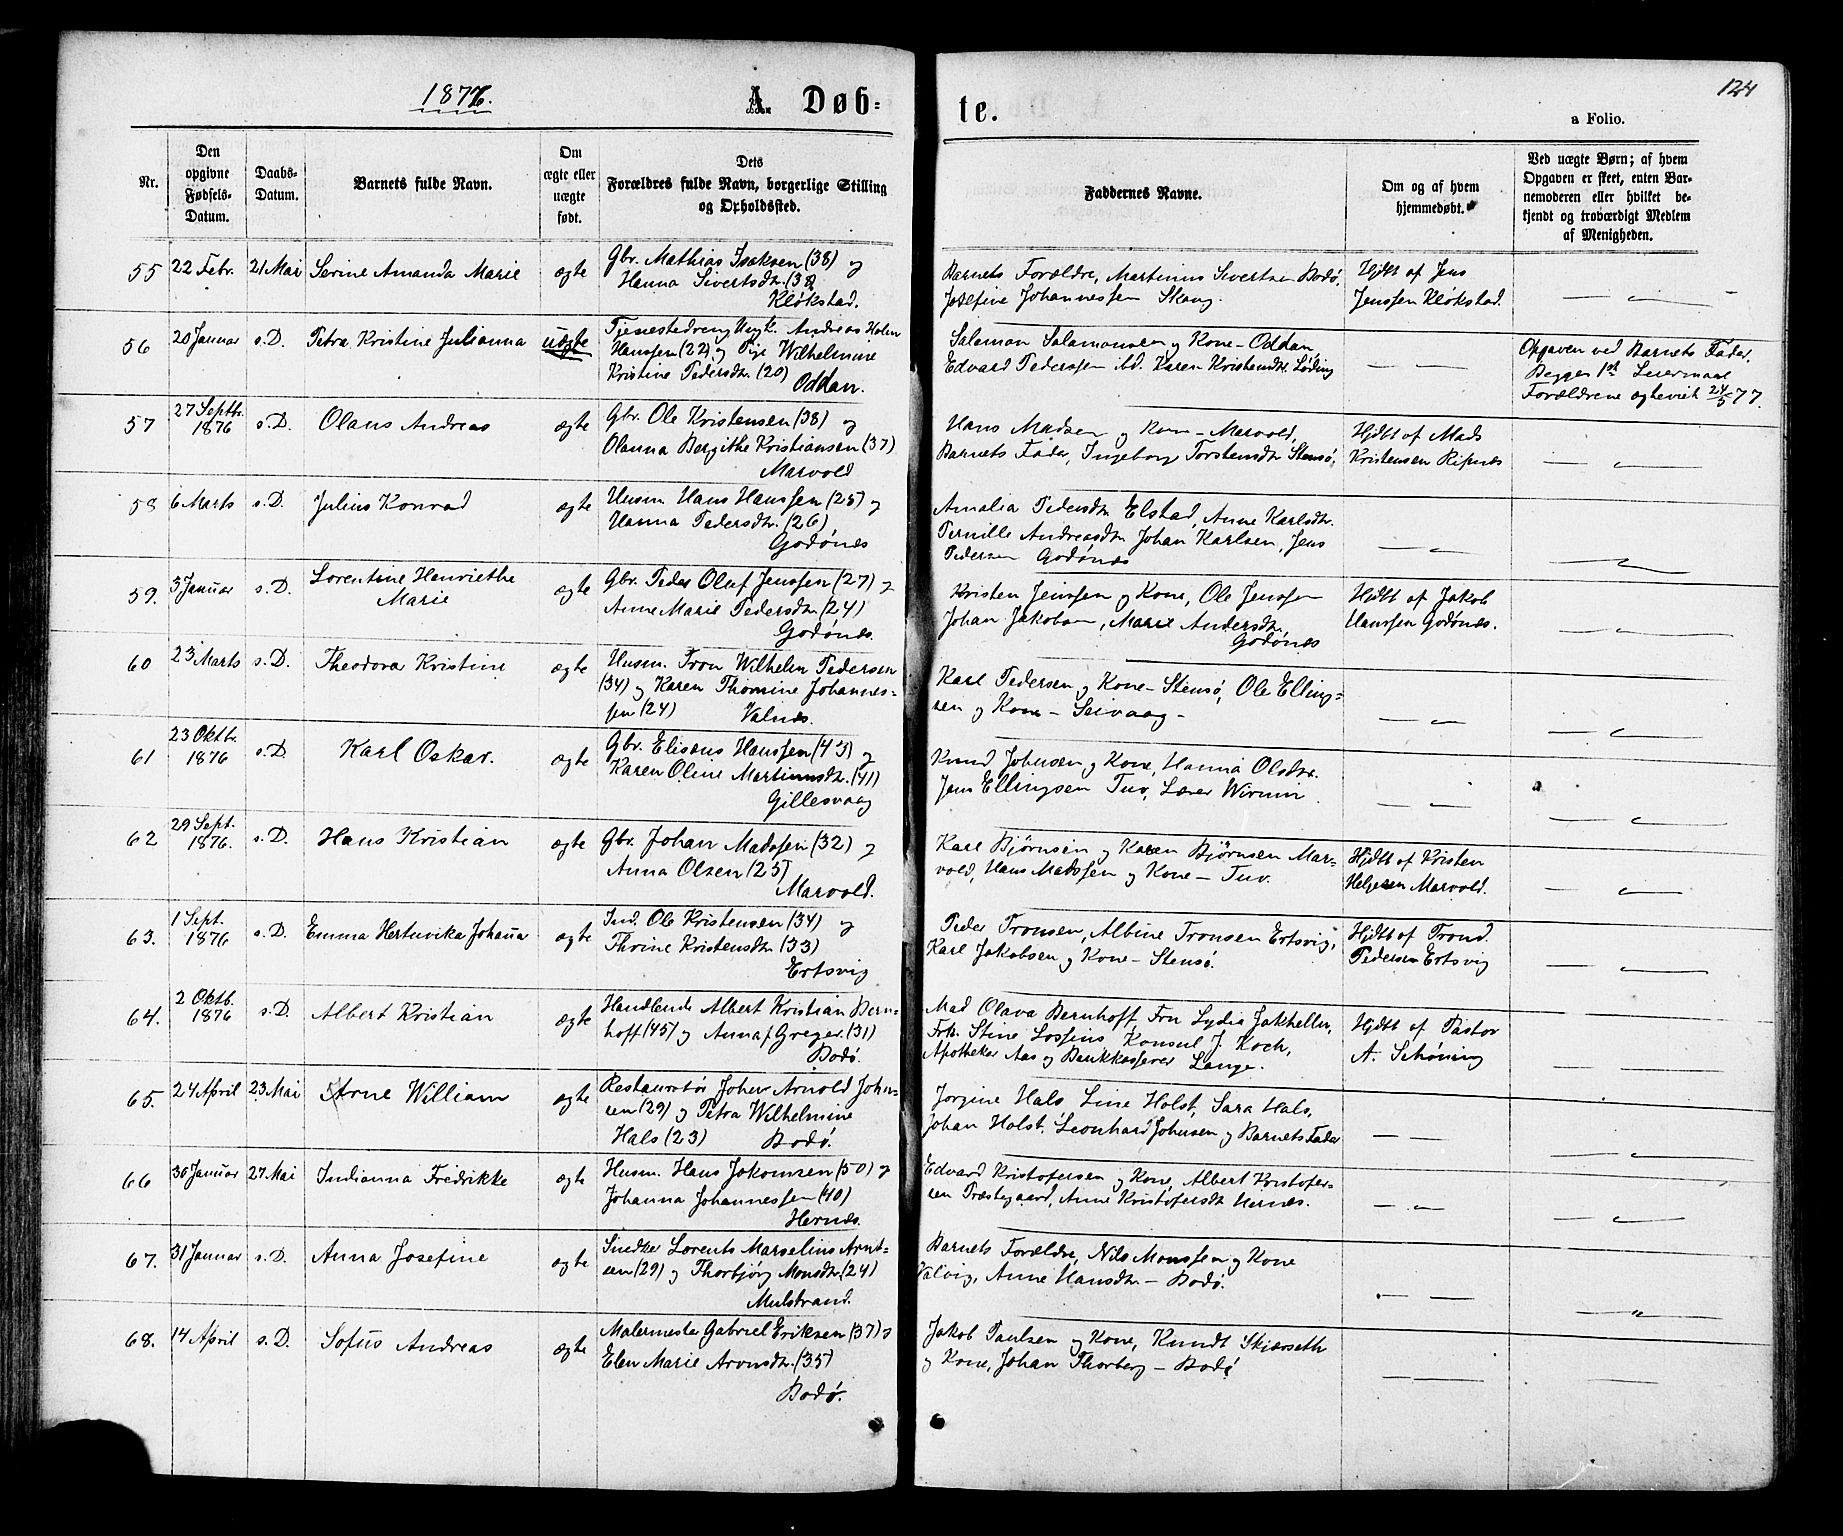 1877.
A. Døb-
te.
124
a Folio.
Nr.
Den opgivne Fødsels-Datum.
Daabs-Datum.
Barnets fulde Navn.
Om ægte eller uægte født.
Dets Forældres fulde Navn, borgerlige Stilling og Opholdssted.
Faddernes Navne.
Om og af hvem hjemmedøbt.
Ved uægte Børn; af hvem Opgaven er skeet, enten Barnemoderen eller hvilket bekjendt og troværdigt Medlem af Menigheden.
55 22 Febr. 21 Mai Serine Amanda Marie ægte
Gbr. Mathias Isaksen (38) og
Hanna Sivertsdtr. (38)
Kløkstad.
Barnets Forældre, Martinus Sivertsen Bodø,
Josefine Johannessen Skaug.
Hjdbt af Jens
Jenssen Kløkstad.
56 20 Januar s.D. Petra Kristine Julianna uægte
Tjenestedreng Ungk. Andreas Holm
Hanssen (22) og Pige Wilhelmine
Kristine Pedersdtr. (20)
Oddan.
Salamon Salamonsen og Kone - Oddan,
Edvard Pederssen ibd. Karen Kristensdtr. Løding
Opgaven ved Barnets Fader.
Begges 1ste Leiermaal
Forældrene ægteviet 24/5 77.
57 27 Septbr. 1876 s.D. Olaus Andreas ægte
Gbr. Ole Kristensen (38) og
Olanna Bergithe Kristiansen (37)
Marvold
Hans Madsen og Kone - Marvold,
Barnets Fader, Ingeborg Torstensdtr. Stensø,
Hjdbt af Mads
Kristensen Ripnes
58 6 Marts s.D. Julius Konrad ægte
Husm. Hans Hanssen (25) og
Hanna Pedersdtr. (26)
Godønes
Amalia Pedersdtr. Elstad, Anne Karlsdtr.
Pernille Andreasdtr. Johan Karlsen, Jens
Pedersen Godønes
59. 3 Januar s.D. Lorentine Henriethe
Marie ægte
Gbr. Peder Oluf Jenssen (27) og
Anne Marie Pedersdtr. (24)
Godønes.
Kristen Jenssen og Kone, Ole Jenssen
Johan Jakobsen, Marie Andersdtr.
Godønes
Hjdbt af Jakob
Hanssen Godønes.
60 23 Marts s.D. Theodora Kristine ægte
Husm. Tron Wilhelm Pedersen
(34) og Karen Thomine Johannes-
sen (24) Valnes.
Karl Pedersen og Kone - Stensø, Ole Elling-
sen og Kone - Seivaag -
61 23 Oktbr. 1876 s.D. Karl Oskar. ægte
Gbr. Elisæus Hanssen (43) og
Karen Oline Martinusdtr. (41)
Gillesvaag
Knud Johnsen og Kone, Hanna Olsdtr.
Jens Ellingsen Tuv, Lærer
62 29 Sept. 1876. s.D. Hans Kristian ægte
Gbr. Johan Madssen (32) og
Anna Olsen (25)
Marvold.
Karl Bjørnsen og Karen Bjørnsen Mar-
vold, Hans Madssen og Kone - Tuv.
Hjdbt af Kristen
Helgesen Marvold.
63. 1 Sept. 1876 s.D. Emma Hertuvika Johana ægte
Ind. Ole Kristensen (34) og
Thrine Kristensdtr. (33)
Ertsvig
Peder Tronsen, Albine Tronsen Ertsvig,
Karl Jakobsen og Kone - Stensø.
Hjdbt af Trond
Pedersen Ertsvig
64. 2 Oktb. 1876 s.D. Albert Kristian ægte
Handlende Albert Kristian Bern-
hoff (45) og Anna f. Greger. (31)
Bodø.
Mad Olava Bernhoff, Fru Lydia Jakhelln,
Frk. Stine Lossius, Konsul J. Koch,
Apotheker Aas og Bankkasserer Lange.
Hjdbt af Pastor
A. Schøning
65. 24 April 23 Mai Arne William ægte
Restauratør Johan Arnold John-
sen (29) og Petra Wilhelmine
Hals (23) Bodø.
Jorgine Hals, Line Holst, Sara Hals,
Johan Holst, Leonhard Johnsen og Barnets Fader
66 30 Januar 27 Mai Indianna Fredrikke ægte
Husm. Hans Jakobsen (50) og
Johanna Johannessen (40)
Hernes.
Edvard Kristofersen og Kone, Albert Kristofer-
sen Præstegaard, Anne Kristofersdtr. Hernes.
67. 31 Januar s.D. Anna Josefine ægte
Snedker Lorents Marselius Arnt-
sen (29) og Thorbjørg Monsdtr. (24)
Mulstrand.
Barnets Forældre, Nils Monssen og Kone
Valvig, Anne Hansdtr. - Bodø.
68. 14 April s.D. Sofus Andreas ægte
Malermester Gabriel Eriksen (37) og
Elen Marie Aronsdtr. (35)
Bodø.
Jakob Paulsen og Kone, Kundt Skjærseth
og Kone, Johan Thorberg - Bodø